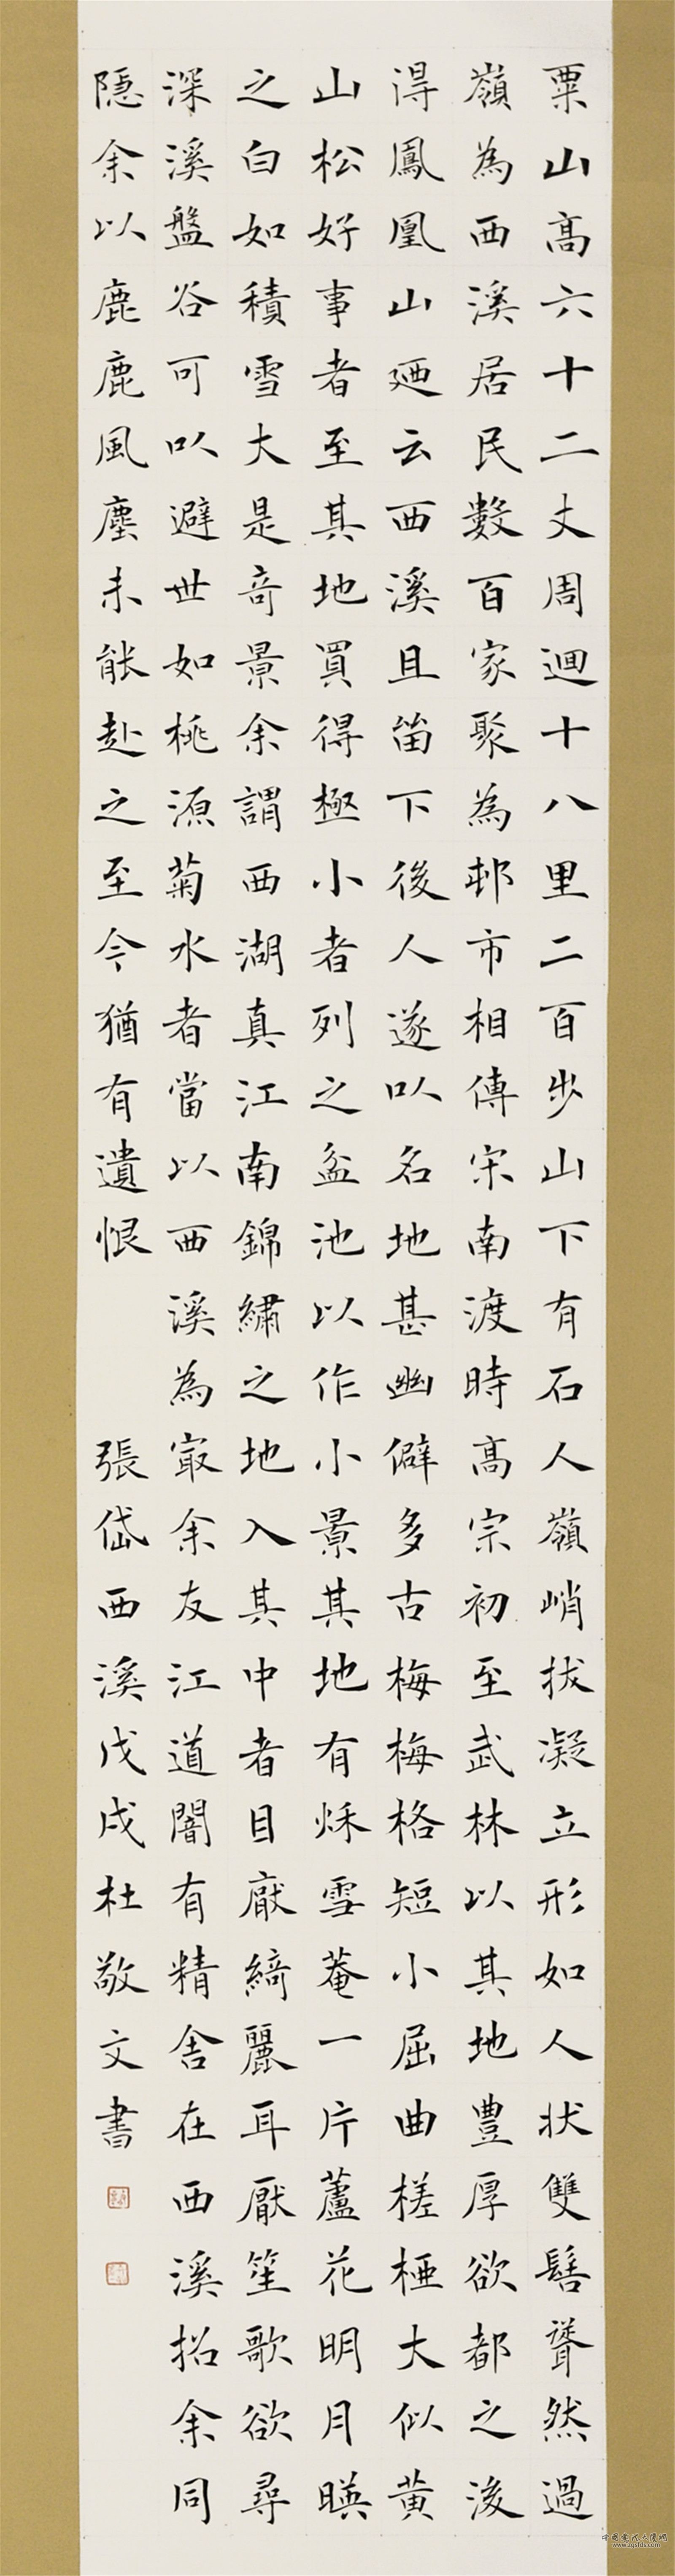 粟山高六十二丈周迴十八里二百步山下有石人嶺峭拔凝立形如人狀雙髻聳然過
嶺為西溪居民數百家聚為邨市相傳宋南渡時高宗初至武林以其地豊厚欲都之後
得鳳凰山廼云西溪且畄下後人遂以名地甚幽僻多古梅梅格短小屈曲槎椏大似黃
山松好事者至其地買得極小者列之盆池以作小景其地有秌雪菴一片蘆花明月暎
之白如積雪大是奇景余謂西湖真江南錦繡之地入其中者目厭綺麗耳厭笙歌欲尋
深溪盤谷可以避世如桃源菊水者當以西溪為寂余友江道闇有精舍在西溪招余同
隱余以鹿鹿風塵未能赴之至今猶有遺恨 張岱西溪戊戌杜敬文書
中國書法大厦網
www.zgsfds.com